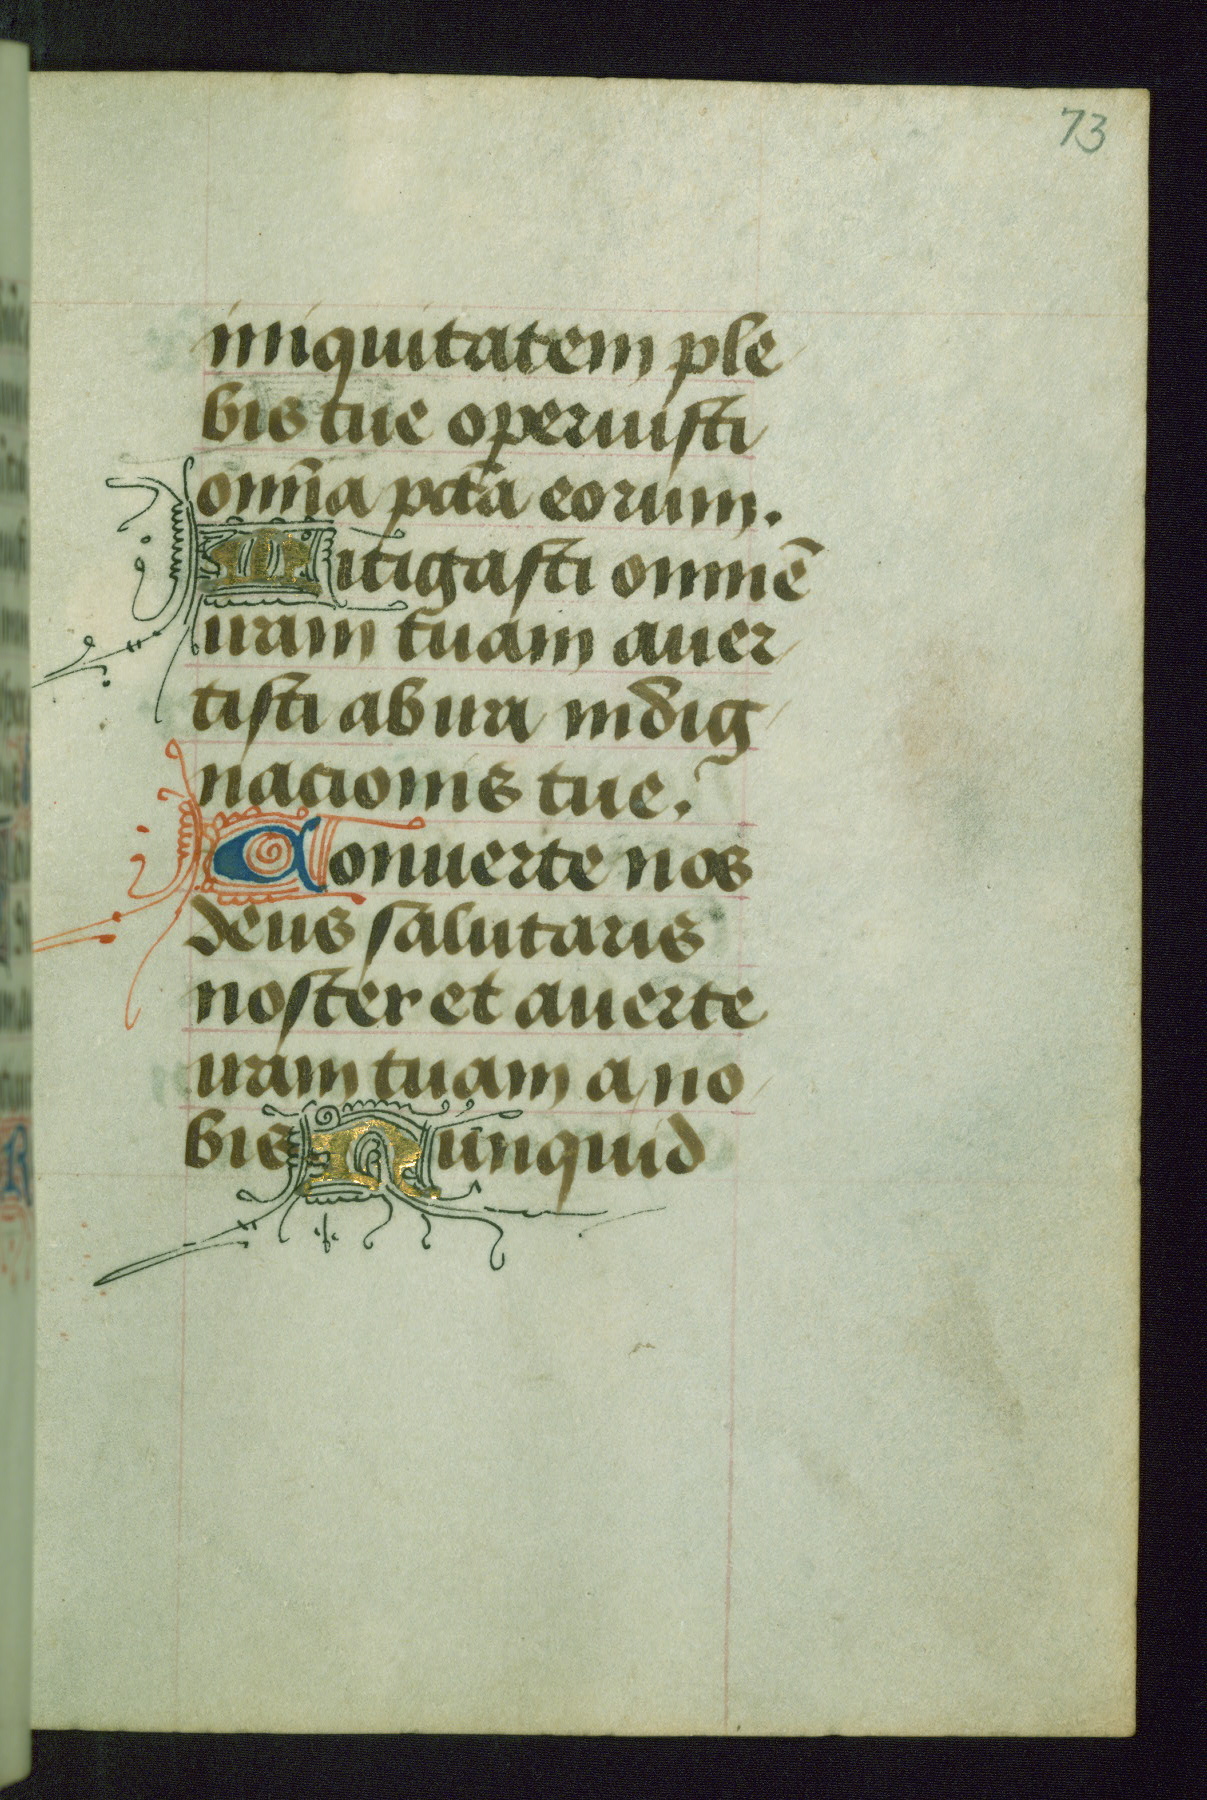 73
iniquitatem ple
bis tue operuisti
om̅ia pctā eorum.
Mitigasti omnē
iram tuam auer
tisti ab ira indig
nacionis tue.
Conuerte nos
deus salutaris
noster et auerte
iram tuam a no
bis Nunquid